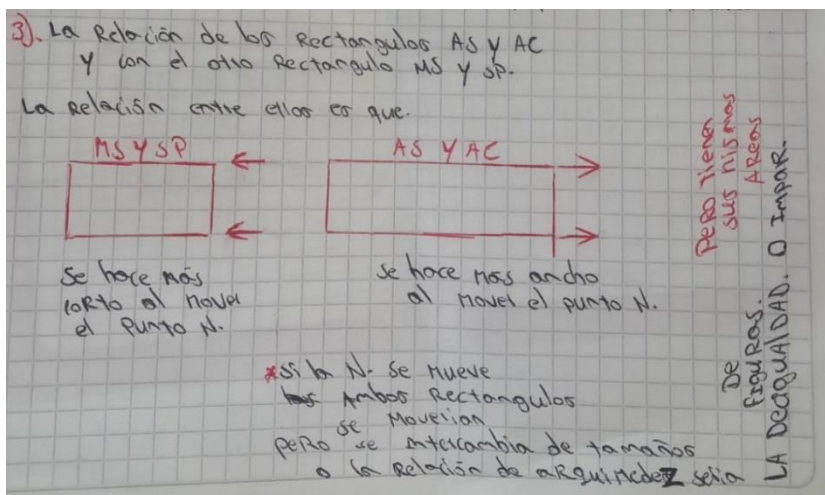 3). La Relación de los Rectangulos AS y AC
y con el otro Rectangulo MS y SP.
La Relación entre ellos es que.
MS Y SP
AS Y AC
se hace más
corto al mover
el punto N.
se hace mas ancho
al mover el punto N.
*si la N. se mueve
Ambos Rectangulos
se moverian
pero se intercambia de tamaños
o la Relación de aRquimedez seria
LA DEcguAlDAD. O Impar.
De
figuras.
Pero tienen
sus mismas
Areas